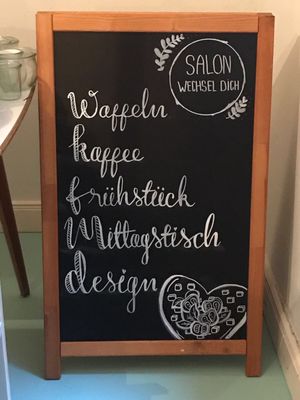 SALON
WECHSEL DICH
Waffeln
kaffee
frühstück
Mittagstisch
design